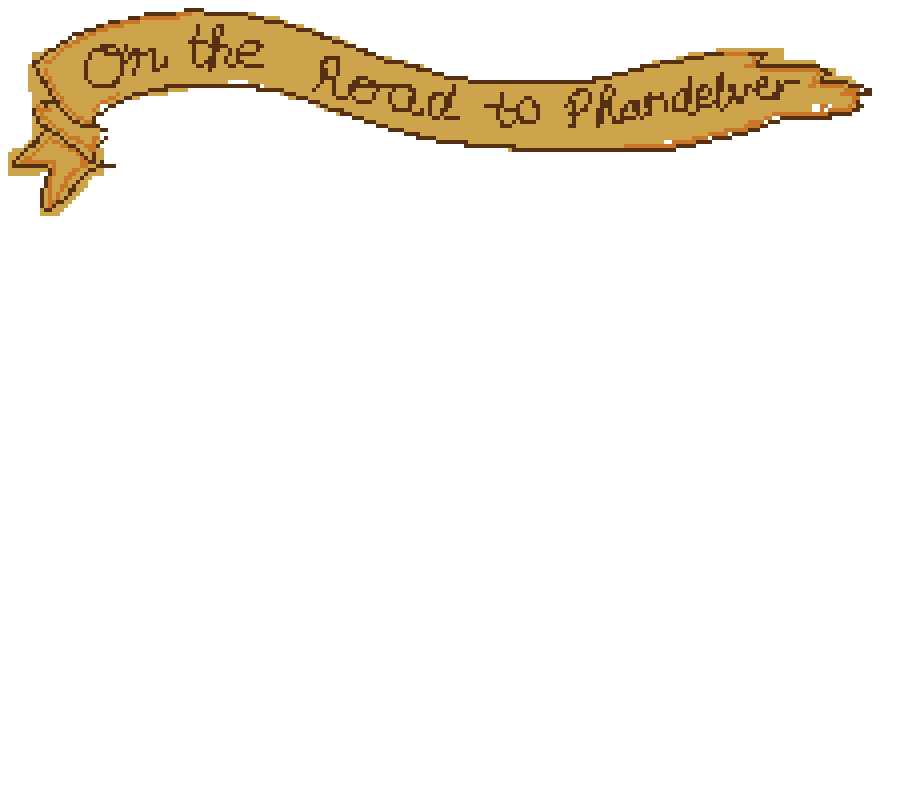 On the Road to Phandelver